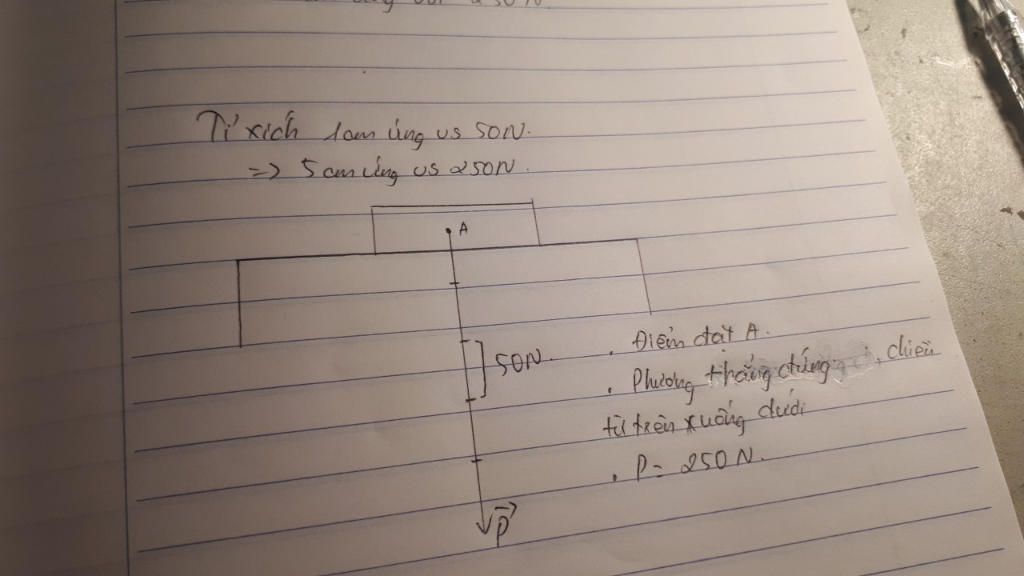 250N.
Tỉ xích 1cm ứng vs 50N.
=> 5cm ứng vs 250N.
A
50N
. Điểm đặt A.
. Phương thẳng đứng, chiều
từ trên xuống dưới
. P = 250N.
P